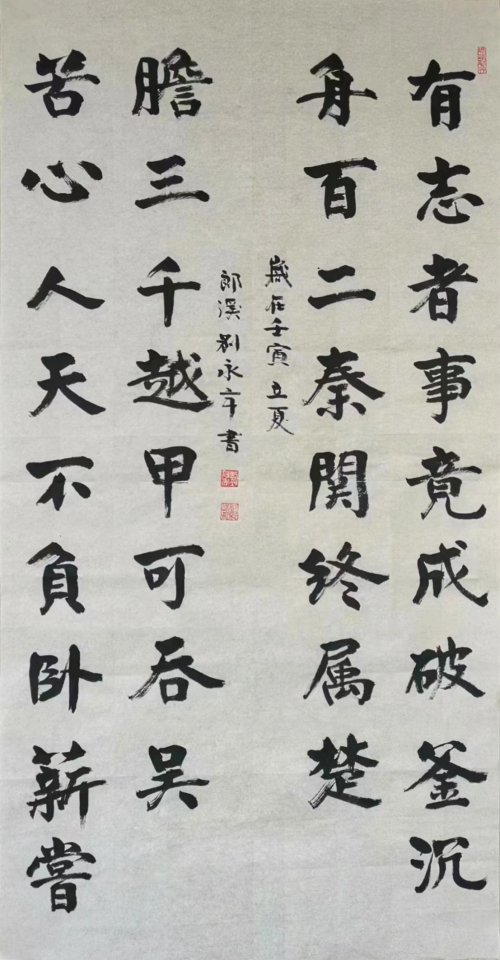 有志者事竟成破釜沉
舟百二秦関终属楚
苦心人天不負卧薪嘗
膽三千越甲可吞吴
歲在壬寅立夏
郎溪永書